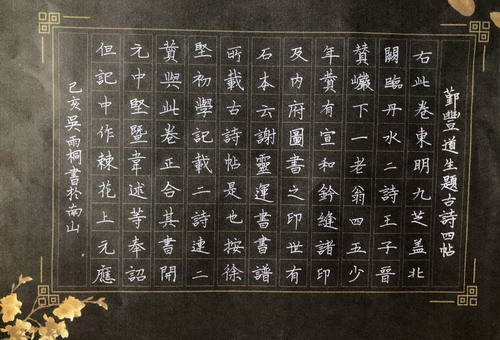 鄞豐道生題古詩四帖
右此卷東明九芝蓋北
闕臨丹水二詩王子晉
贊巘下一老翁四五少
年贊有宣和鈐縫諸印
及内府圖書之印世有
石本云謝靈運書書譜
所載古詩帖是也按徐
堅初學記載二詩連二
贊與此卷正合其書開
元中堅暨韋述等奉詔
但記中作棘花上元應
己亥吴雨桐書於南山